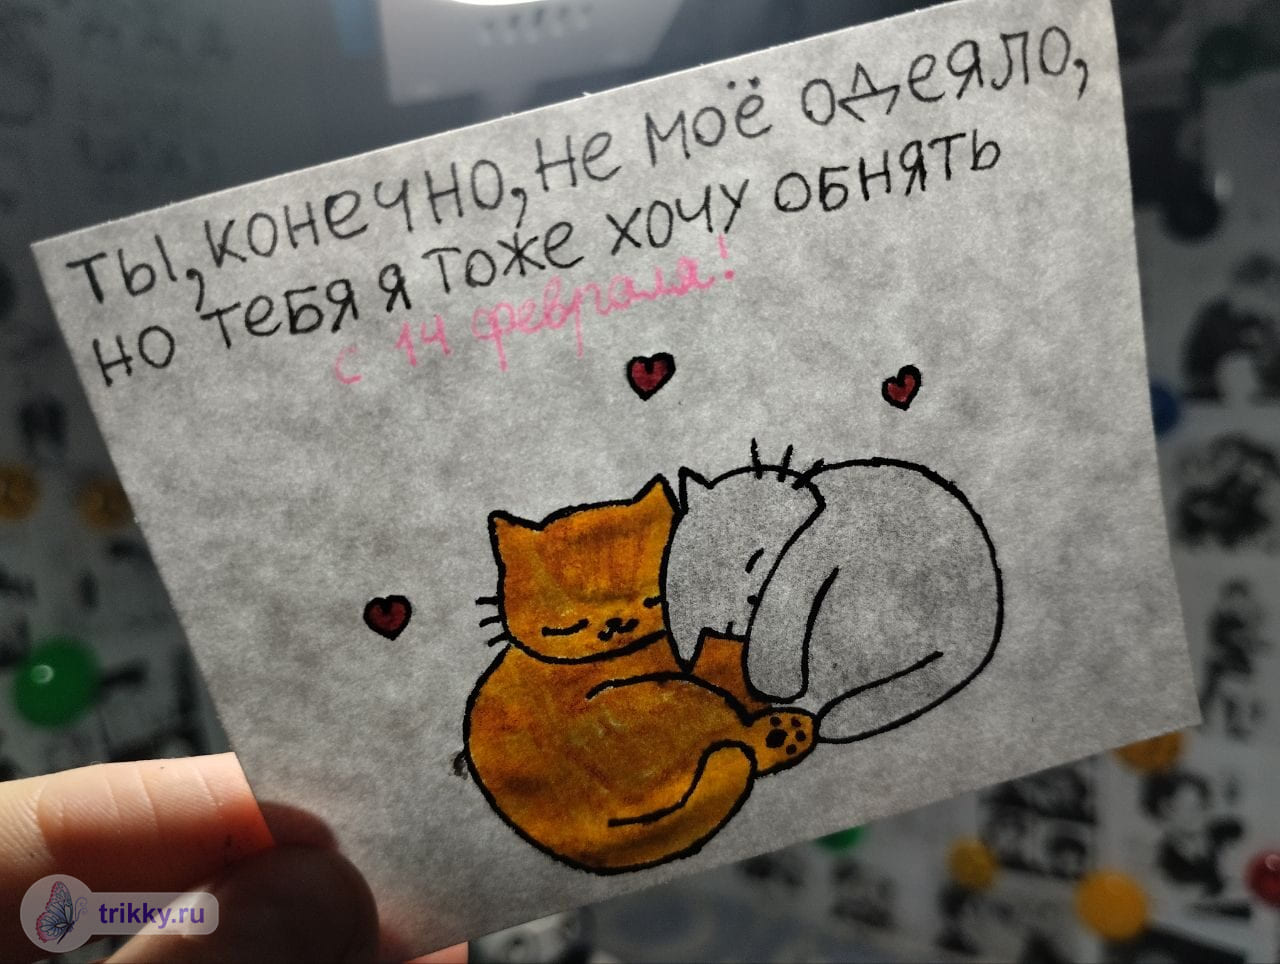 ты, конечно, не моё одеяло,
но тебя я тоже хочу обнять
с 14 февраля!
trikky.ru